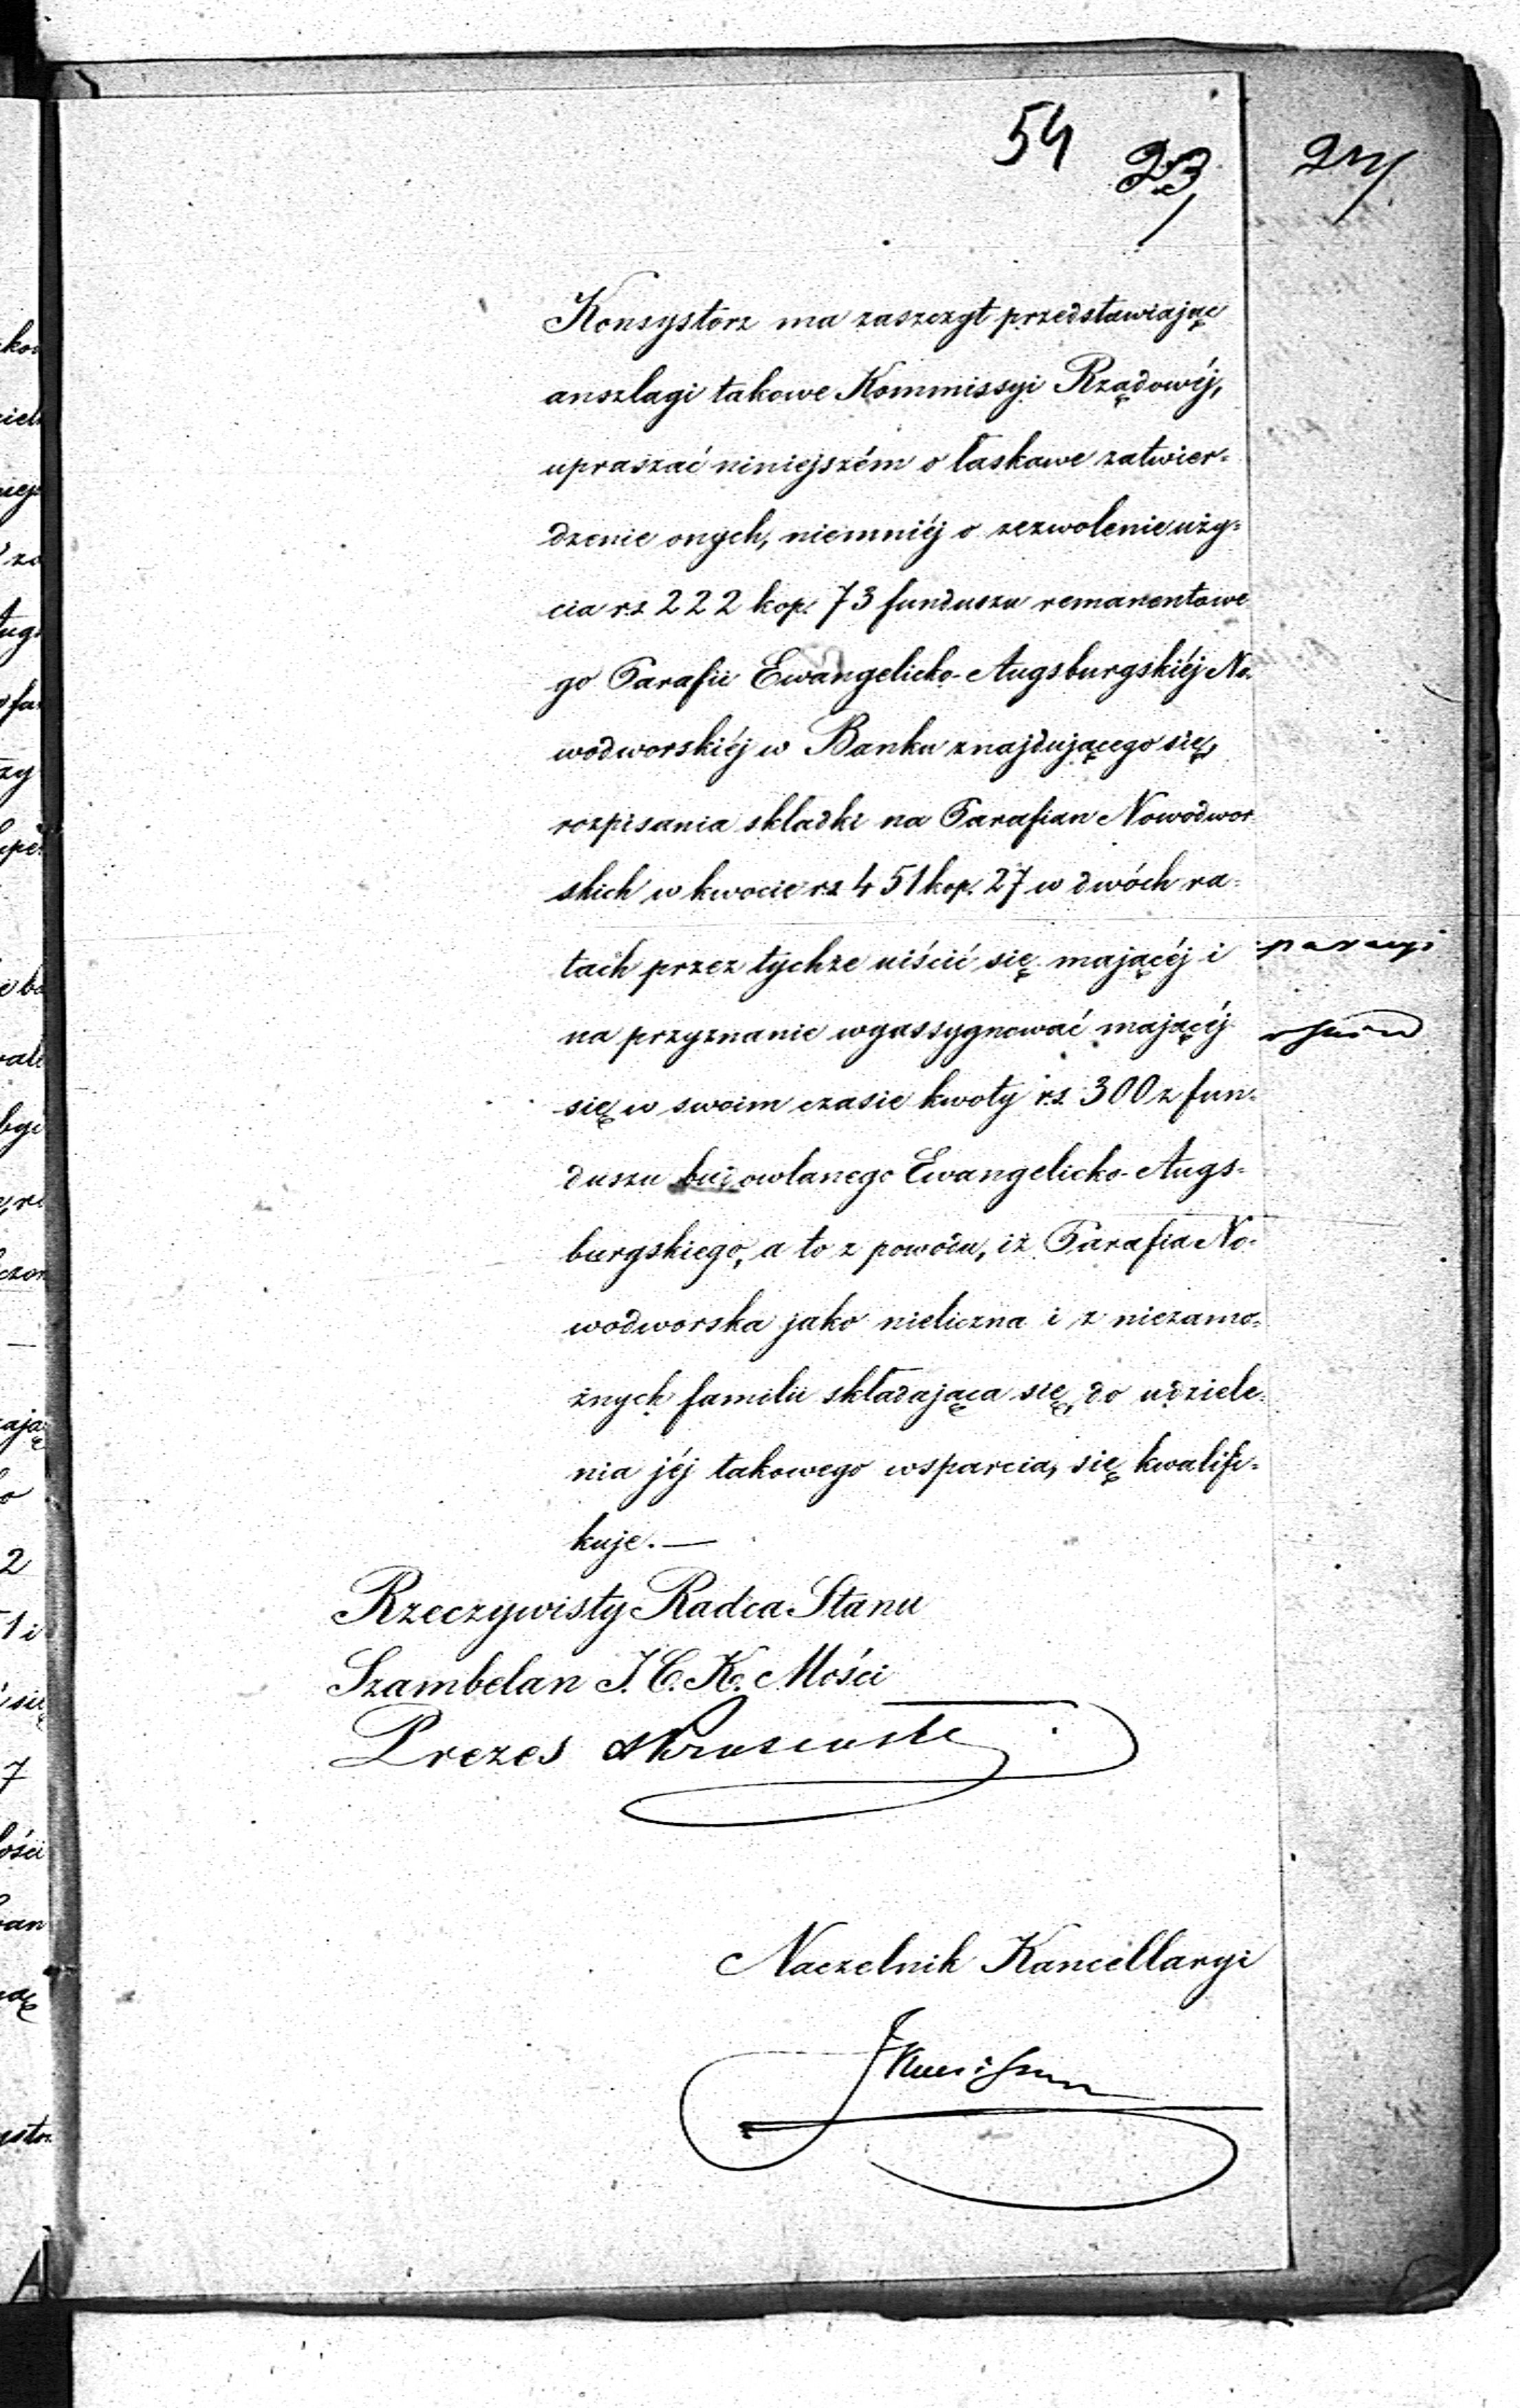 54
23
Konsystorz ma zaszczyt przedstawiając
anszlagi takowe Kommissyi Rządowéj,
upraszać niniejszém o łaskawe zatwier=
dzenie onych, niemniéj o zezwolenie uży=
cia rs 222 kop. 73 funduszu remanentowe
go Parafii Ewangelicko-Augsburgskiéj No=
wodworskiéj w Banku znajdującego się,
rozpisania składki na Parafian Nowodwor
skich w kwocie rs 451 kop. 27 w dwóch ra=
tach przez tychże uiścić się mającéj i
na przyznanie wyassygnować mającéj
się w swoim czasie kwoty rs. 300 z fun=
duszu budowlanego Ewangelicko-Augs=
burgskiego, a to z powodu, iż Parafia No=
wodworska jako nieliczna i z niezamo=
żnych familii składająca się, do udziele=
nia jéj takowego wsparcia, się kwalifi=
kuje.—
Rzeczywisty Radca Stanu
Szambelan J. C. K. Mości
Prezes
Naczelnik Kancellaryi